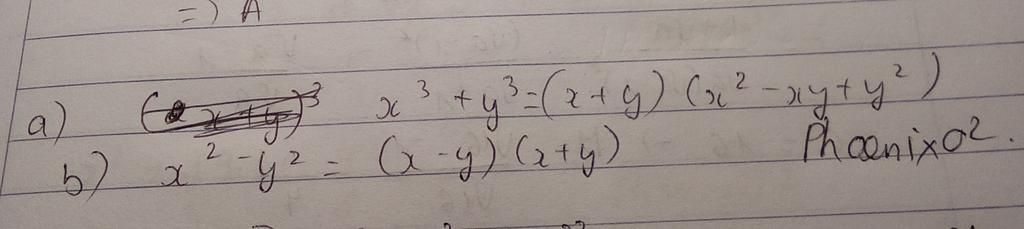 =) A
a) x³ + y³ = (x + y) (x² - xy + y²)
b) x² - y² = (x - y) (x + y)
Phoenix02.